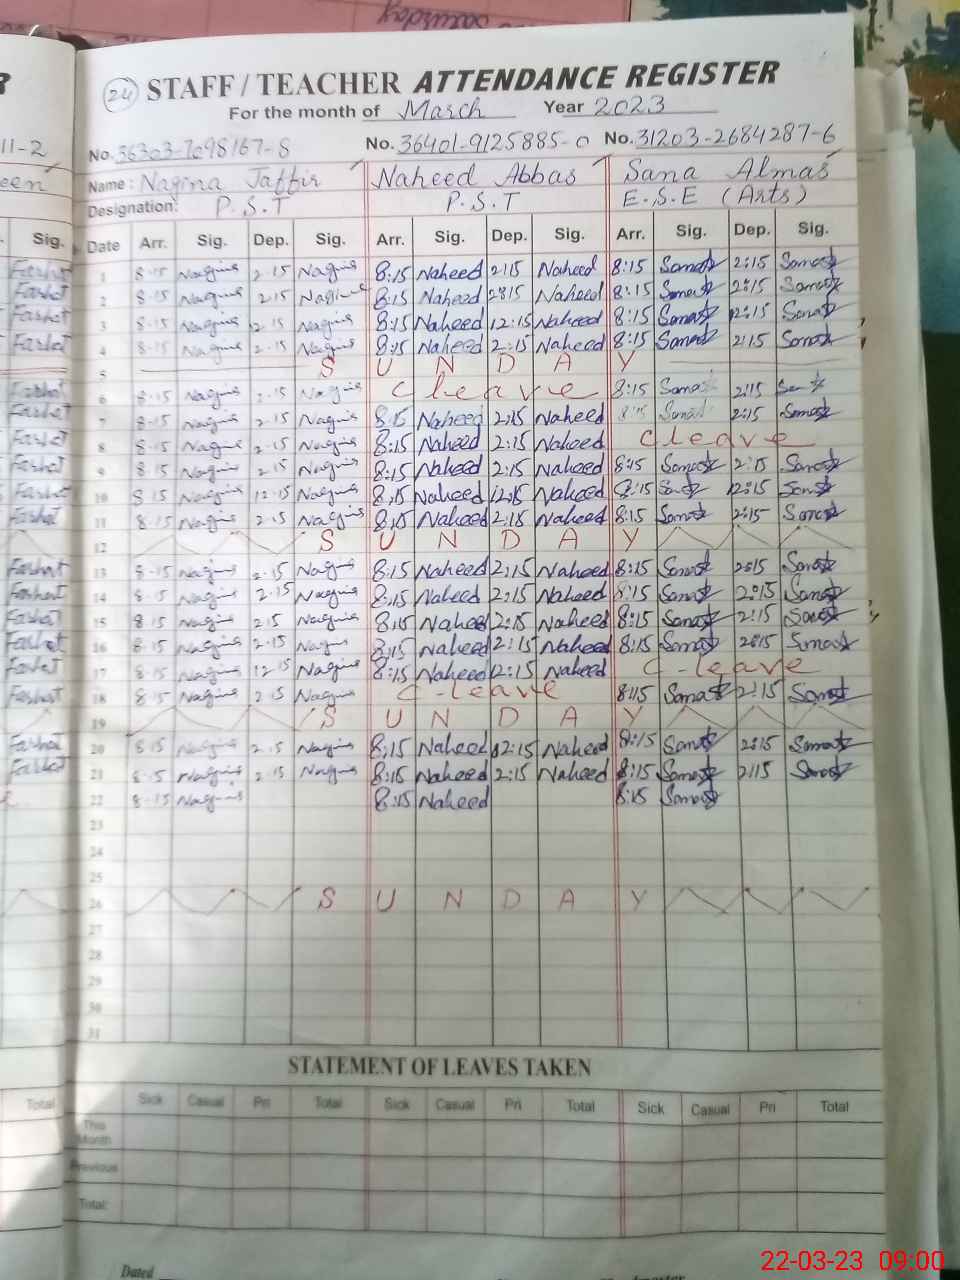 saturday
R
24 STAFF / TEACHER ATTENDANCE REGISTER
For the month of March Year 2023
11-2
No. 36303-7098167-8 No. 36401-9125885-0 No. 31203-2684287-6
een Name: Nagina Jaffir Naheed Abbas Sana Almas
Designation: P.S.T P.S.T E.S.E (Arts)
Sig. Date Arr. Sig. Dep. Sig. Arr. Sig. Dep. Sig. Arr. Sig. Dep. Sig.
Farhat 1 8-15 Nagina 2.15 Nagina 8:15 Naheed 2:15 Naheed 8:15 Sana 2:15 Sana
Farhat 2 8-15 Nagina 2.15 Nagina 8:15 Naheed 2:15 Naheed 8:15 Sana 2:15 Sana
Farhat 3 8-15 Nagina 12.15 Nagina 8:15 Naheed 12:15 Naheed 8:15 Sana 12:15 Sana
Farhat 4 8-15 Nagina 2.15 Nagina 8:15 Naheed 2:15 Naheed 8:15 Sana 2:15 Sana
5 S U N D A Y
Farhat 6 8-15 Nagina 2.15 Nagina C leave 8:15 Sana 2:15 Sana
Farhat 7 8-15 Nagina 2.15 Nagina 8:15 Naheed 2:15 Naheed 8:15 Sana 2:15 Sana
Farhat 8 8-15 Nagina 2.15 Nagina 8:15 Naheed 2:15 Naheed C leave
Farhat 9 8-15 Nagina 2.15 Nagina 8:15 Naheed 2:15 Naheed 8:15 Sana 2:15 Sana
Farhat 10 8-15 Nagina 12.15 Nagina 8:15 Naheed 12:15 Naheed 8:15 Sana 12:15 Sana
Farhat 11 8-15 Nagina 2.15 Nagina 8:15 Naheed 2:15 Naheed 8:15 Sana 2:15 Sana
12 S U N D A Y
Farhat 13 8-15 Nagina 2.15 Nagina 8:15 Naheed 2:15 Naheed 8:15 Sana 2:15 Sana
Farhat 14 8-15 Nagina 2.15 Nagina 8:15 Naheed 2:15 Naheed 8:15 Sana 2:15 Sana
Farhat 15 8-15 Nagina 2.15 Nagina 8:15 Naheed 2:15 Naheed 8:15 Sana 2:15 Sana
Farhat 16 8-15 Nagina 2.15 Nagina 8:15 Naheed 2:15 Naheed 8:15 Sana 2:15 Sana
Farhat 17 8-15 Nagina 12.15 Nagina 8:15 Naheed 12:15 Naheed C-leave
Farhat 18 8-15 Nagina 2.15 Nagina C-leave 8:15 Sana 2:15 Sana
19 S U N D A Y
Farhat 20 8-15 Nagina 2.15 Nagina 8:15 Naheed 2:15 Naheed 8:15 Sana 2:15 Sana
Farhat 21 8-15 Nagina 2.15 Nagina 8:15 Naheed 2:15 Naheed 8:15 Sana 2:15 Sana
22 8-15 Nagina 8:15 Naheed 8:15 Sana
23
24
25
26 S U N D A Y
27
28
29
30
31
STATEMENT OF LEAVES TAKEN
Total Sick Casual Pri Total Sick Casual Pri Total Sick Casual Pri Total
This Month
Previous
Total:
Dated
22-03-23 09:00